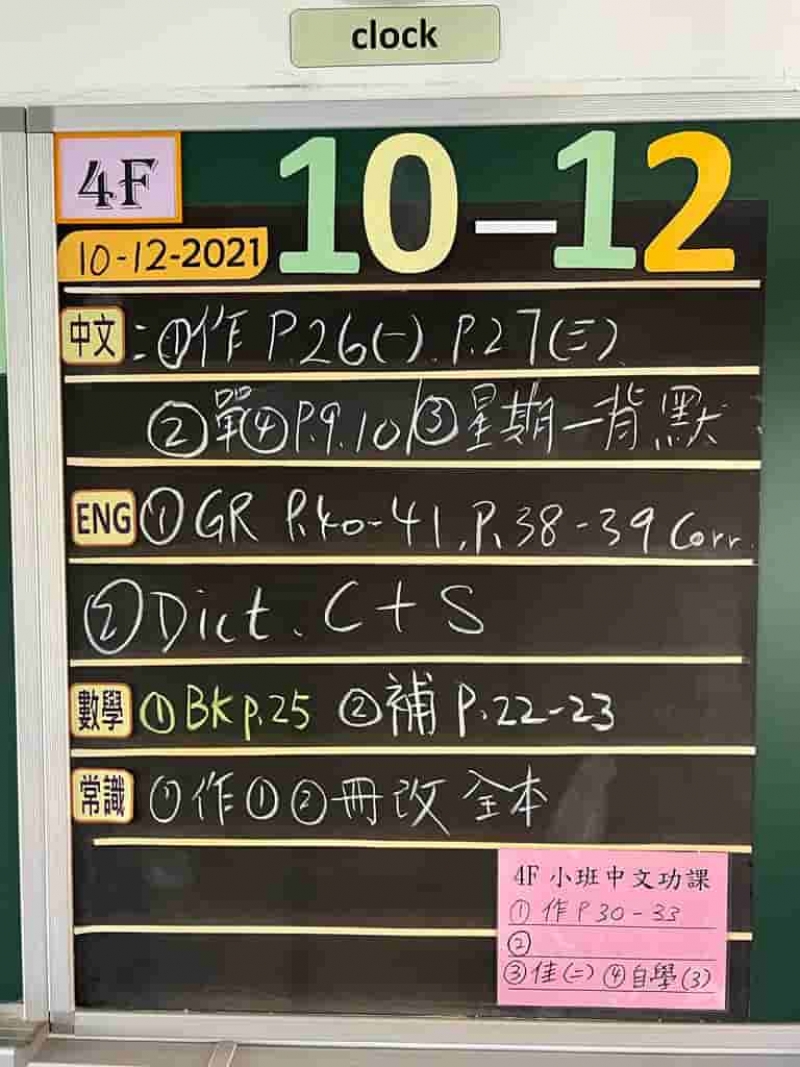 clock
4F
10-12
10-12-2021
中文:①作 P.26(一). P.27(三)
②單④P.9.10/③星期一背默
ENG ①GR P.40-41, P.38-39 Corr.
②Dict. C+S
數學 ①BK p.25 ②補 P.22-23
常識 ①作①②冊改全本
4F 小班中文功課
①作 P 30-33
②
③佳(二) ④自學(3)